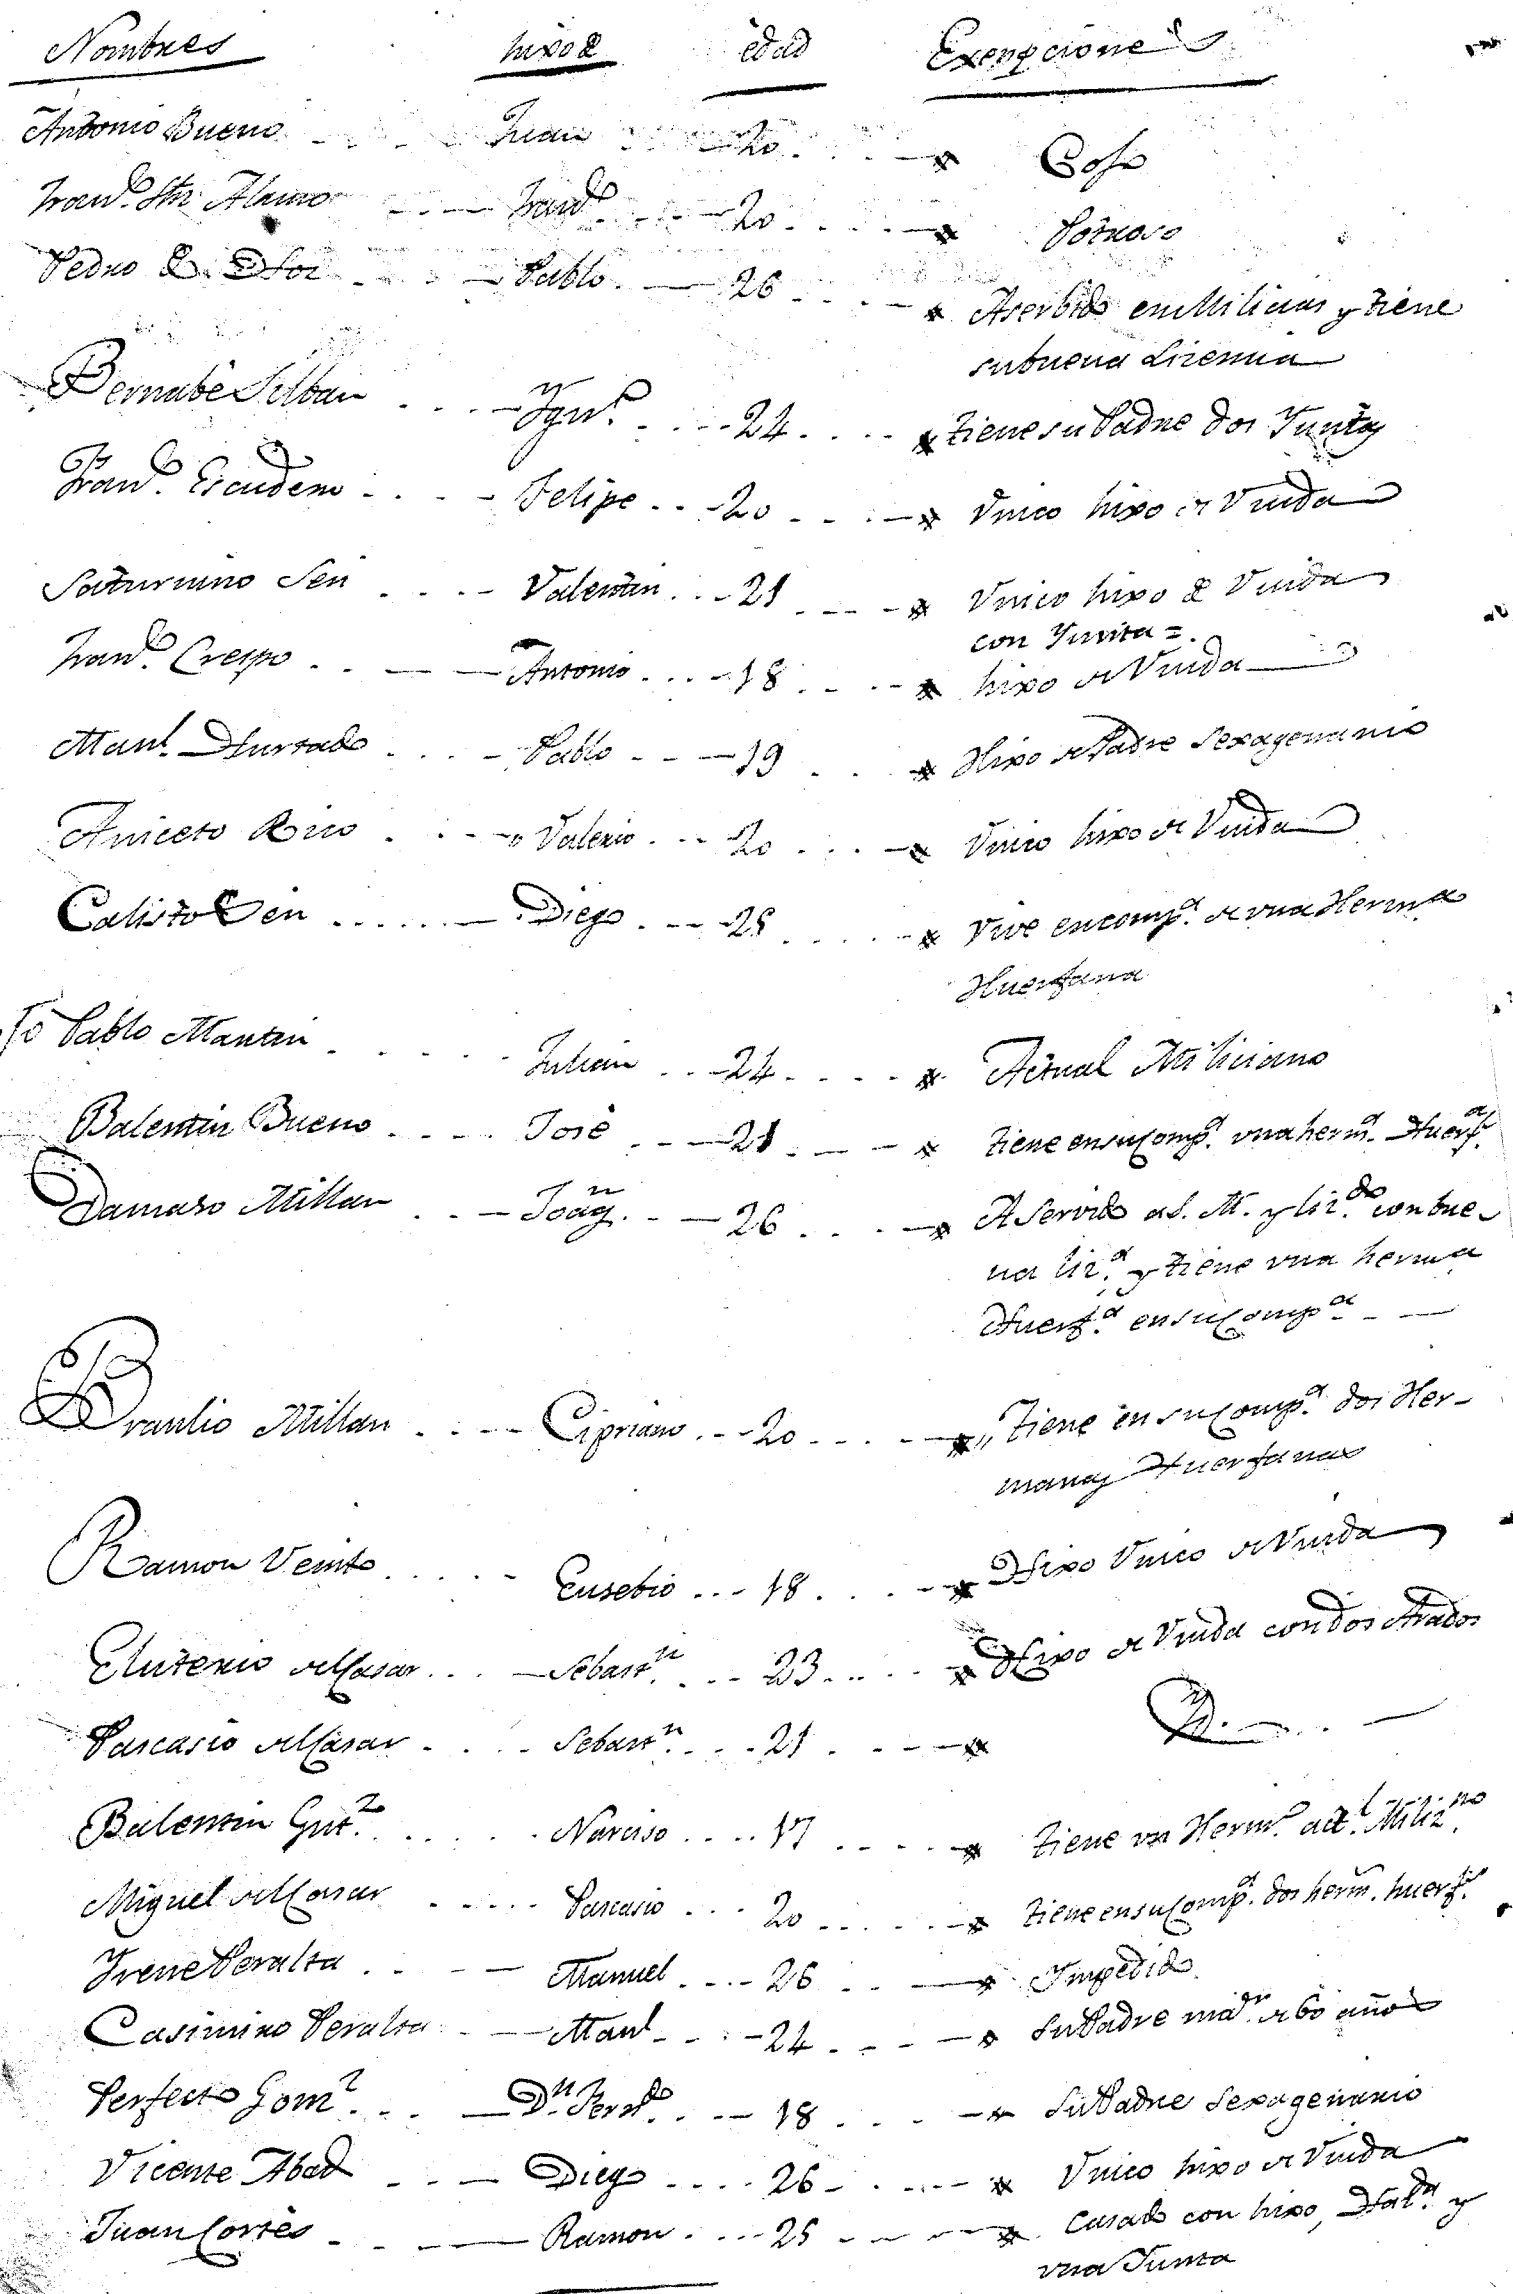 Nombres hixo de edad Exempciones
Antonio Bueno Juan 20 Coxo
Fran.co Sn. Alamo Fran.co 20 Potroso
Pedro de Pablo 26 A serbido en Milicias y tiene
su buena Lizencia
Bernabè Silban Ygn.o 24 tiene su Padre dos Yuntas
Fran.co Escudero Felipe 20 Vnico hixo de Viuda
Saturnino Sen Valentin 21 Vnico hixo de Viuda
con Yunta =.
Fran.co Crespo Antonio 18 hixo de Viuda
Man.l Hurtado Pablo 19 Hixo de Padre Sexagenario
Aniceto Rico Valerio 20 Vnico hixo de Viuda
Calisto Sen Diego 25 Vive en comp.a de vna Herm.a
Huerfana
Pablo Martin Julian 24 Actual Miliciano
Balentin Bueno José 21 tiene en su Comp.a vna herm.a Huerf.a
Damaso Millan Joaq.n 26 A Servido a S. M. y liz.do con bue-
na liz.a y tiene vna herm.a
Huerf.a en su Comp.a
Braulio Millan Cipriano 20 Tiene en su Comp.a dos Her-
manas Huerfanas
Ramon Veinto Eusebio 18 Hixo Vnico de Viuda
Eluterio del Casar Sebast.n 23 Hixo de Viuda con dos Arados
Pascasio del Casar Sebast.n 21 Yd.
Balentin Gut.z Narciso 17 tiene vn Herm.o act.l Miliz.no
Miguel del Casar Pascasio 20 tiene en su Comp.a dos herm. huerf.s
Yrene Peralta Manuel 26 Ympedido
Casimiro Peralta Man.l 24 Su Padre mã.or de 60 años
Perfecto Gom.z D.n Fern.do 18 Su Padre Sexagenario
Vicente Abad Diego 26 Vnico hixo de Viuda
Juan Cortès Ramon 25 Casado con hixo, y
vna Yunta